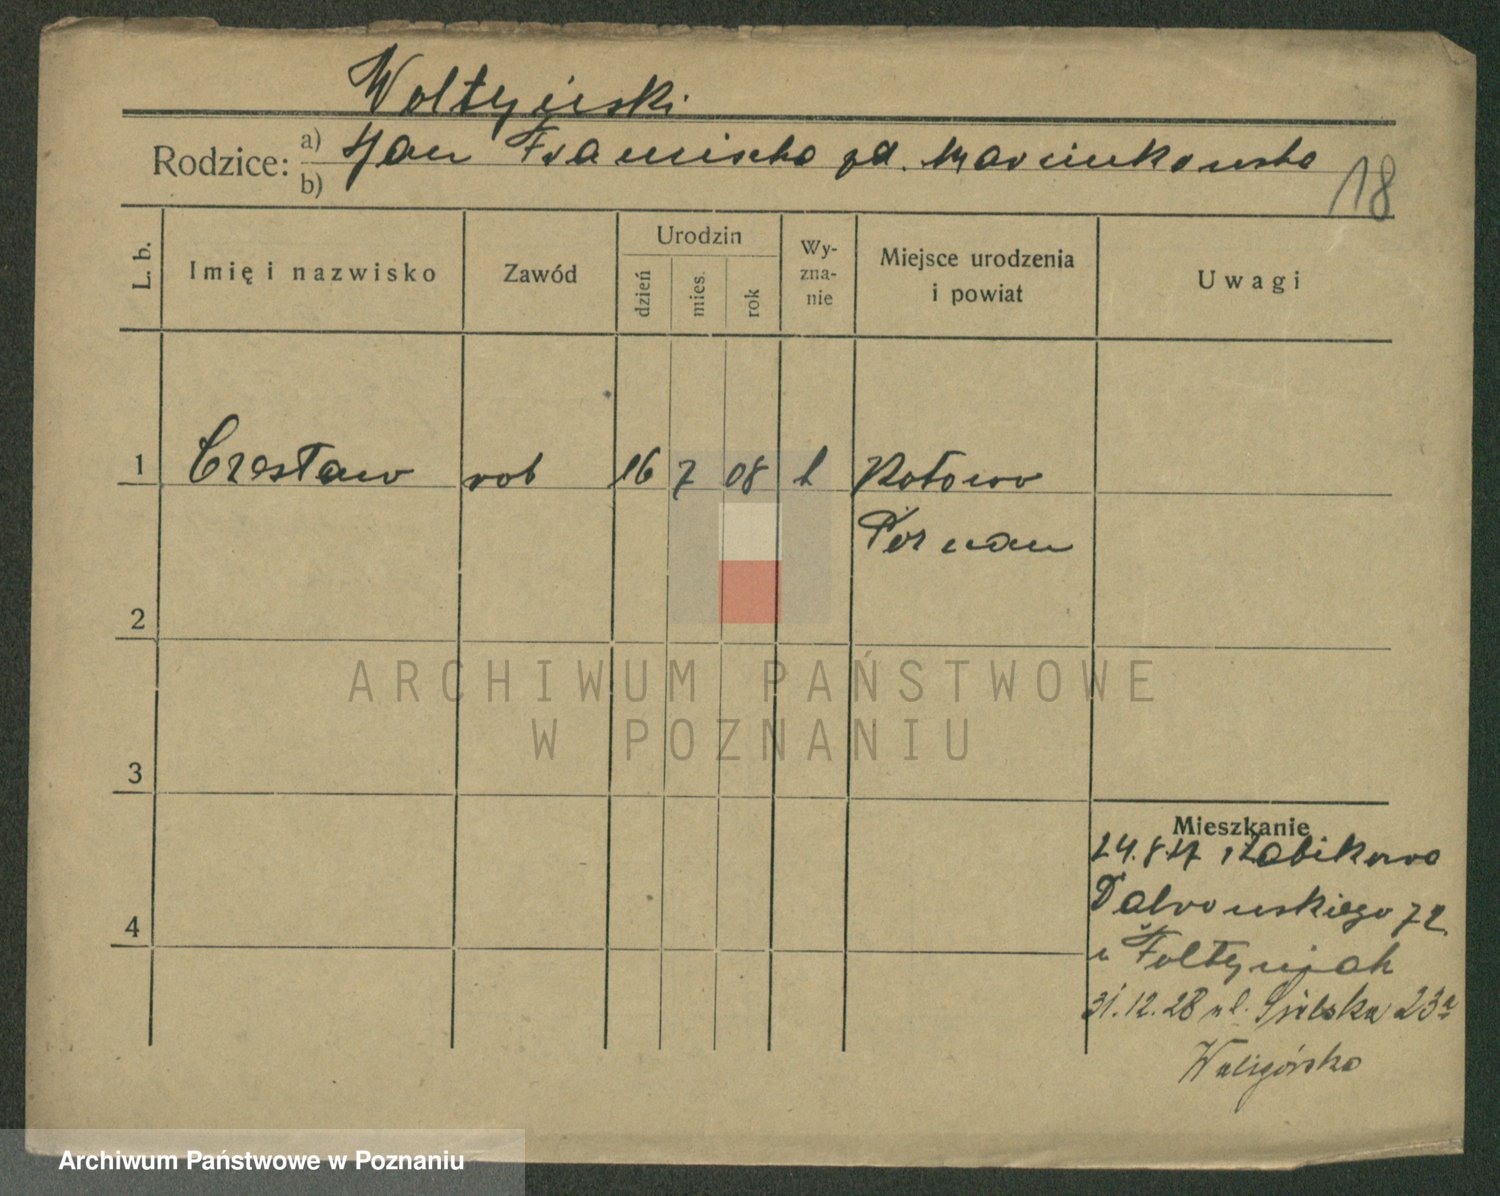 Woltyński
Rodzice: a) b) Jan Franciszka zd. Marcinkowska
18
L. b. Imię i nazwisko Zawód Urodzin dzień mies. rok Wy-zna-nie Miejsce urodzenia i powiat Uwagi
1 Czesław rob 16 7 08 k Kotowo
Poznan
2
ARCHIWUM PAŃSTWOWE
W POZNANIU
3
Mieszkanie
24.8.27 Żabikowo
4
Dabrowskiego 72
u Foltyniak
31.12.28 ul. Sielska 23a
Waligórska
Archiwum Państwowe w Poznaniu